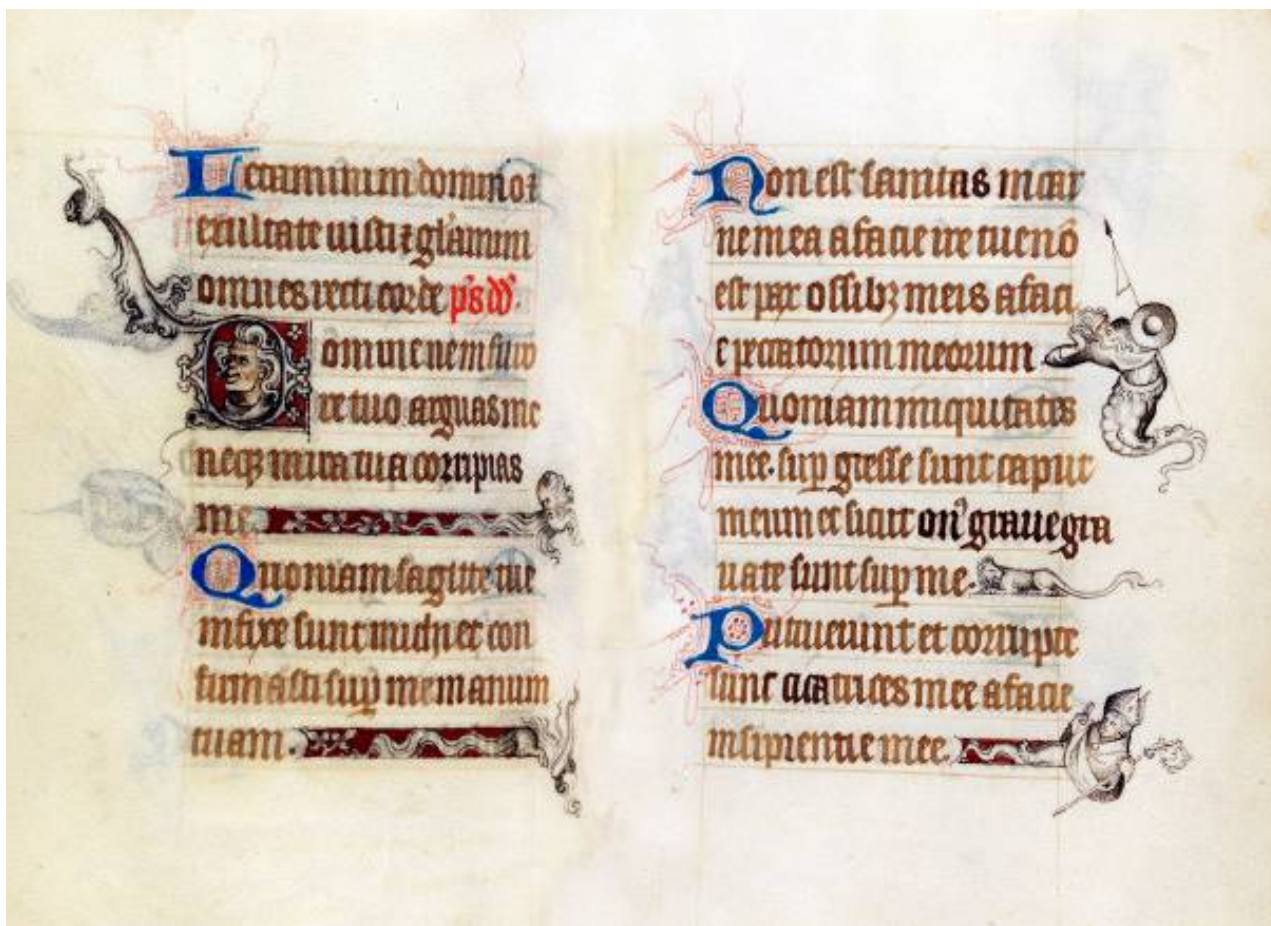 Letamini in domino ⁊
exultate iusti ⁊ gl'amini
omnes recti corde ps dd'.
Domine ne in furo
re tuo arguas me
neq; in ira tua corripias
me.
Quoniam sagitte tue
infixe sunt michi et con
firmasti sup me manum
tuam.
Non est sanitas in car
ne mea a facie ire tue nō
est pax ossib; meis a faci
e peccatorum meorum
Quoniam iniquitates
mee. sup gresse sunt caput
meum et sicut on' grave gra
uate sunt sup me.
Putruerunt et corrupte
sunt cicatrices mee a facie
insipientie mee.